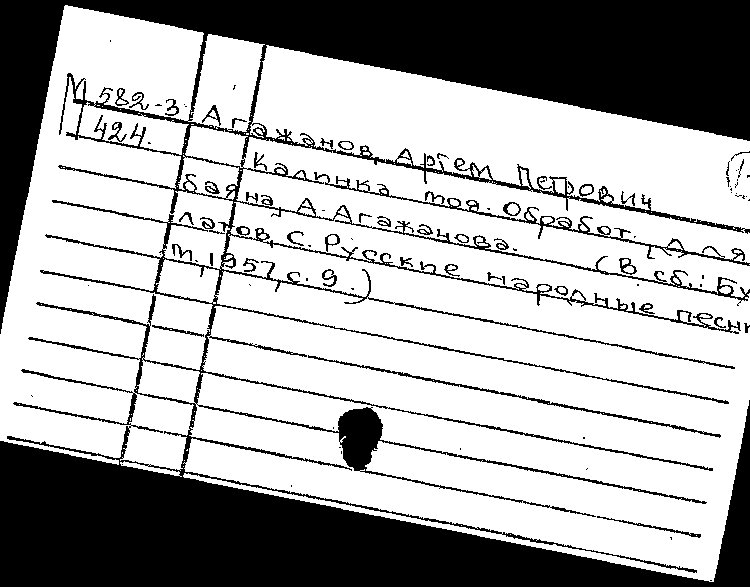 М 582-3
424.
Агажанов, Артем Петрович
Калинка моя. Обработ. для
баяна, А. Агажанова. (В сб.: Бу
латов, С. Русские народные песни
М, 1957, с. 9.)